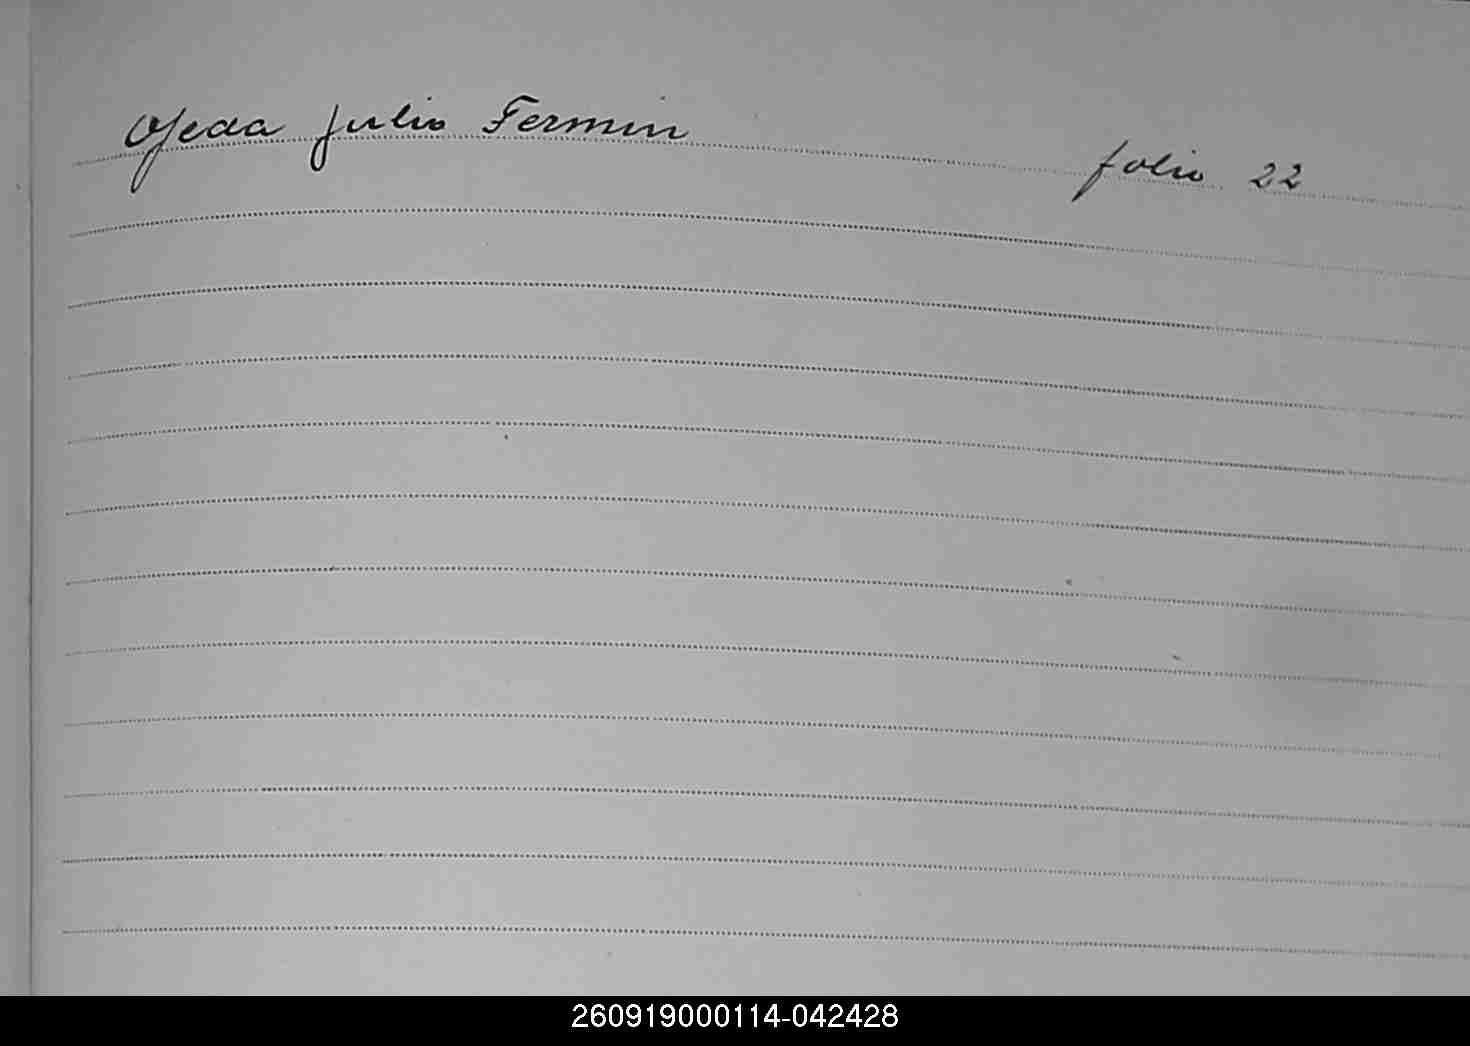 Ojeda Julio Fermin
folio 22
260919000114-042428